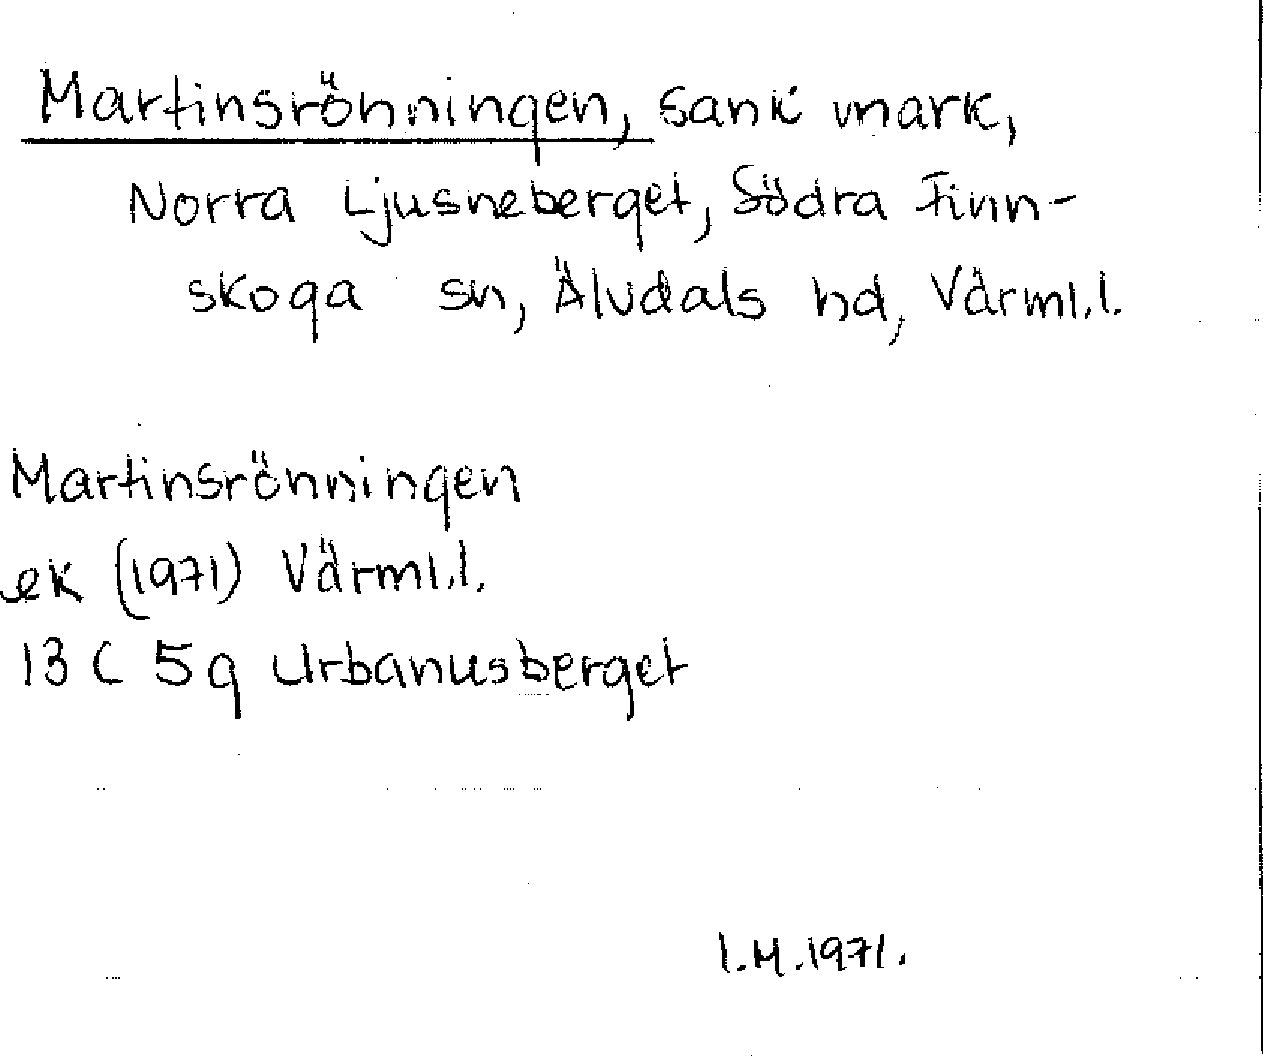 Martinsrönningen, sank mark,
Norra Ljusneberget, Södra Finn-
skoga sn, Älvdals hd, Värml.l.
Martinsrönningen
ek (1971) Värml.l.
13 C 5g Urbanusberget
I.M.1971.